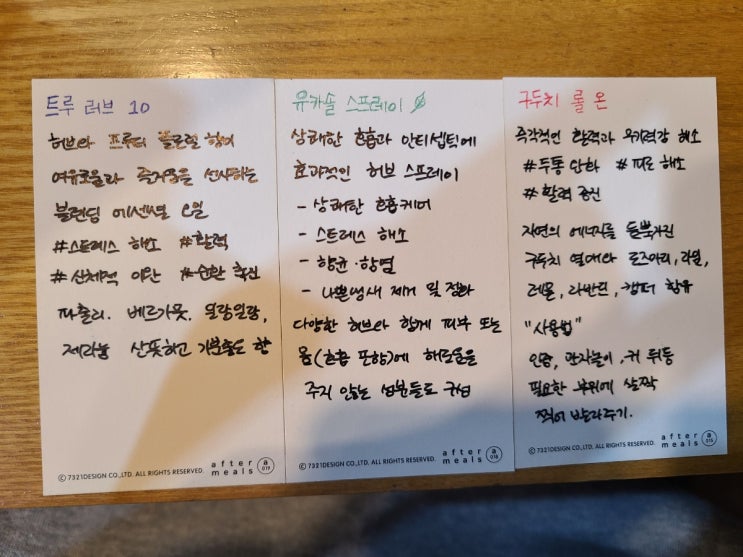 트루 러브 10
허브와 프루티 플로럴 향이
여유로움과 즐거움을 선사하는
블렌딩 에센셜 오일
#스트레스 해소 #활력
#신체적 이완 #순환 촉진
파출리. 베르가못. 일랑일랑,
제라늄 산뜻하고 기분좋은 향
© 7321DESIGN CO.,LTD. ALL RIGHTS RESERVED.
after meals
a 019
유카솔 스프레이
상쾌한 호흡과 안티셉틱에
효과적인 허브 스프레이
- 상쾌한 호흡케어
- 스트레스 해소
- 향균·항염
- 나쁜냄새 제거 및 정화
다양한 허브와 함께 피부 또는
몸(호흡 포함)에 해로움을
주지 않는 성분들로 구성
© 7321DESIGN CO.,LTD. ALL RIGHTS RESERVED.
after meals
a 018
구두치 롤 온
즉각적인 활력과 무기력감 해소
#두통 완화 #피로 해소
#활력 증진
자연의 에너지를 듬뿍가진
구두치 열매와 로즈마리, 라임,
레몬, 라반딘, 캠퍼 함유
"사용법"
인중, 관자놀이, 귀 뒤등
필요한 부위에 살짝
찍어 발라주기.
© 7321DESIGN CO.,LTD. ALL RIGHTS RESERVED.
after meals
a 015